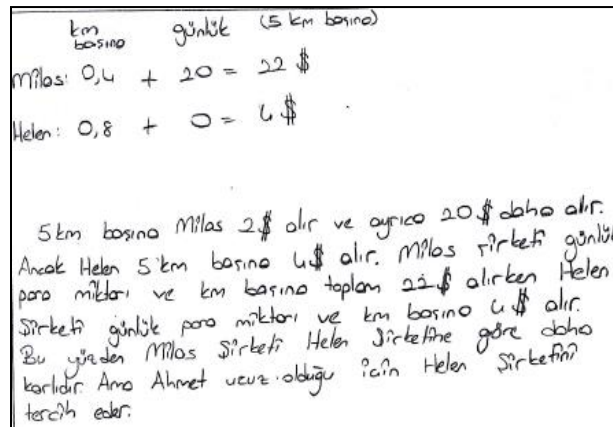 km başına günlük (5 km başına)
Milas: 0,4 + 20 = 22 $
Helen: 0,8 + 0 = 4 $
5 km başına Milas 2$ alır ve ayrıca 20$ daha alır.
Ancak Helen 5 km başına 4$ alır. Milas şirketi günlük
para miktarı ve km başına toplam 22$ alırken Helen
Şirketi günlük para miktarı ve km başına 4$ alır.
Bu yüzden Milas Şirketi Helen Şirketine göre daha
karlıdır. Ama Ahmet ucuz olduğu için Helen Şirketini
tercih eder.